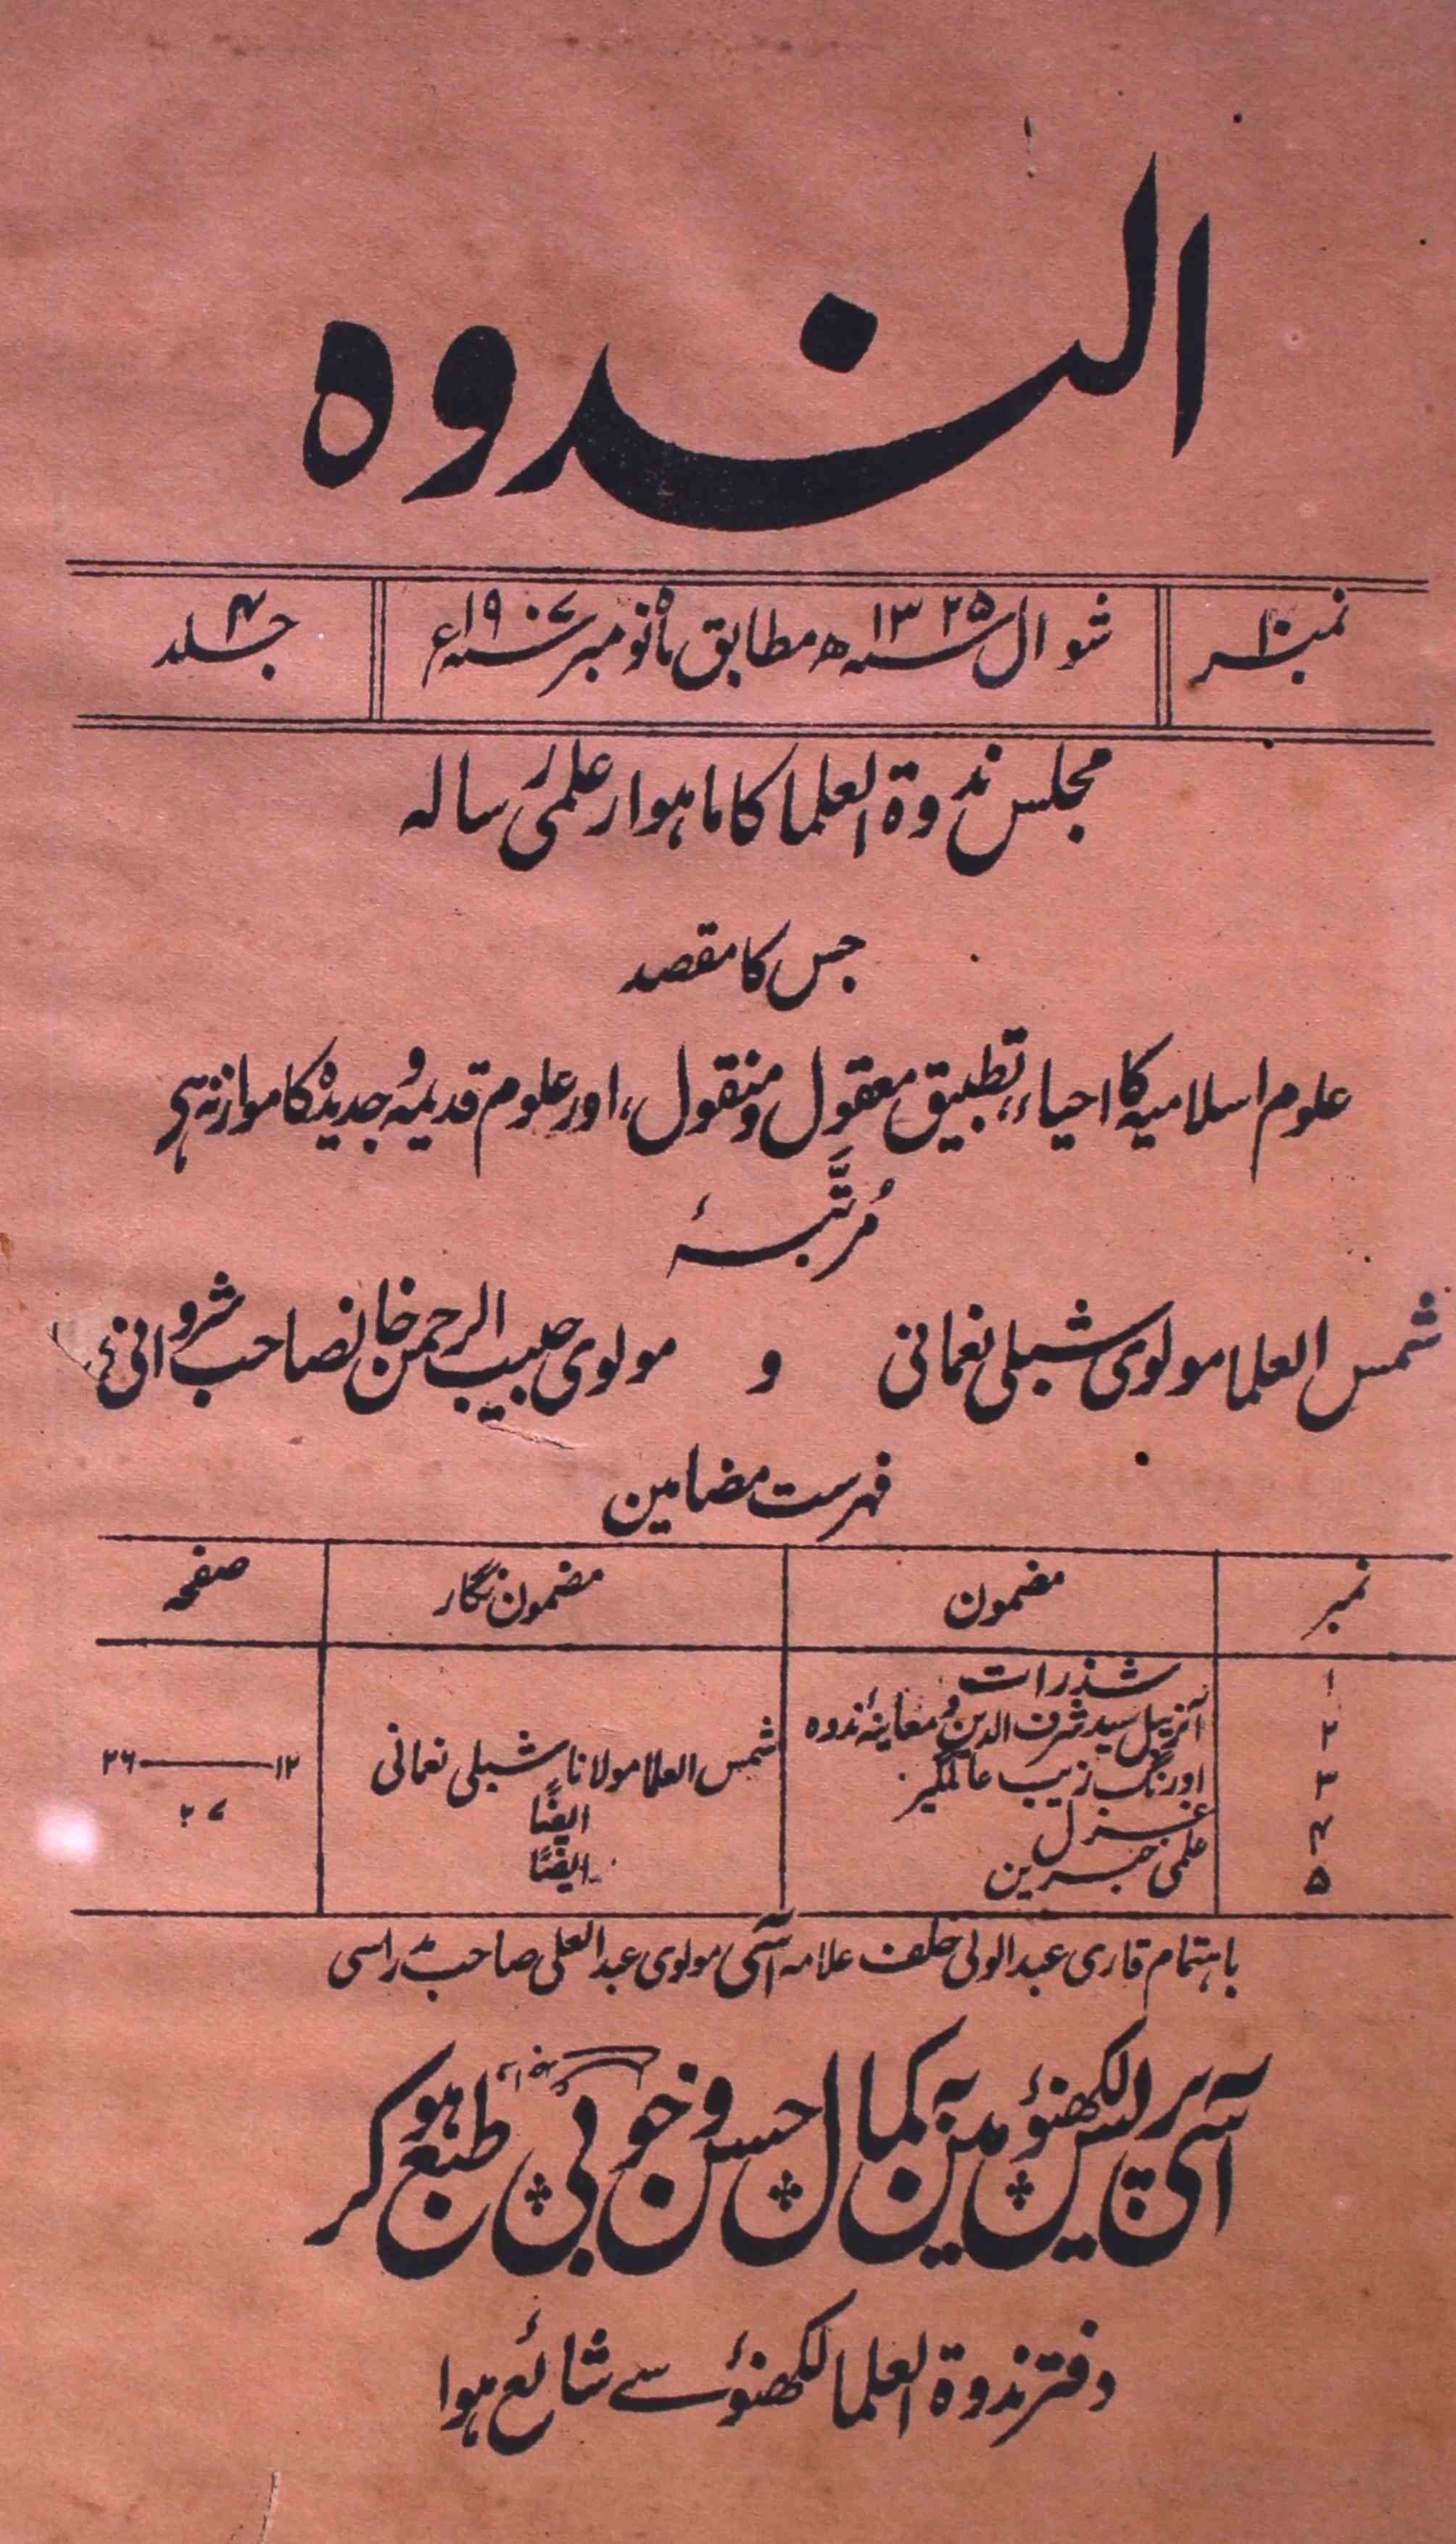 الندوہ
نمبر ۱۰ شوال سنہ ۱۳۲۵ھ مطابق ماہ نومبر سنہ ۱۹۰۷ء جلد ۴
مجلس ندوۃ العلما کا ماہوار علمی رسالہ
جس کا مقصد
علوم اسلامیہ کا احیاء، تطبیق معقول و منقول، اور علوم قدیمہ و جدیدہ کا موازنہ ہی
مُرتَّبہٴ
شمس العلما مولوی شبلی نعمانی و مولوی حبیب الرحمن خانصاحب شروانی
فہرست مضامین
نمبر مضمون مضمون نگار صفحہ
۱ شذرات
۲ آنریبل سید شرف الدین و معاینہٴ ندوہ
۳ اورنگ زیب عالمگیر شمس العلما مولانا شبلی نعمانی ۱۲ — ۲۶
۴ غزل ایضًا ۲۷
۵ علمی خبرین ایضًا
باہتمام قاری عبدالولی خلف علامہ آسی مولوی عبدالعلی صاحب مدراسی
آسی پریس لکھنؤ مین بہ کمال حسن و خوبی طبع ہو کر
دفتر ندوۃ العلما لکھنؤ سے شائع ہوا